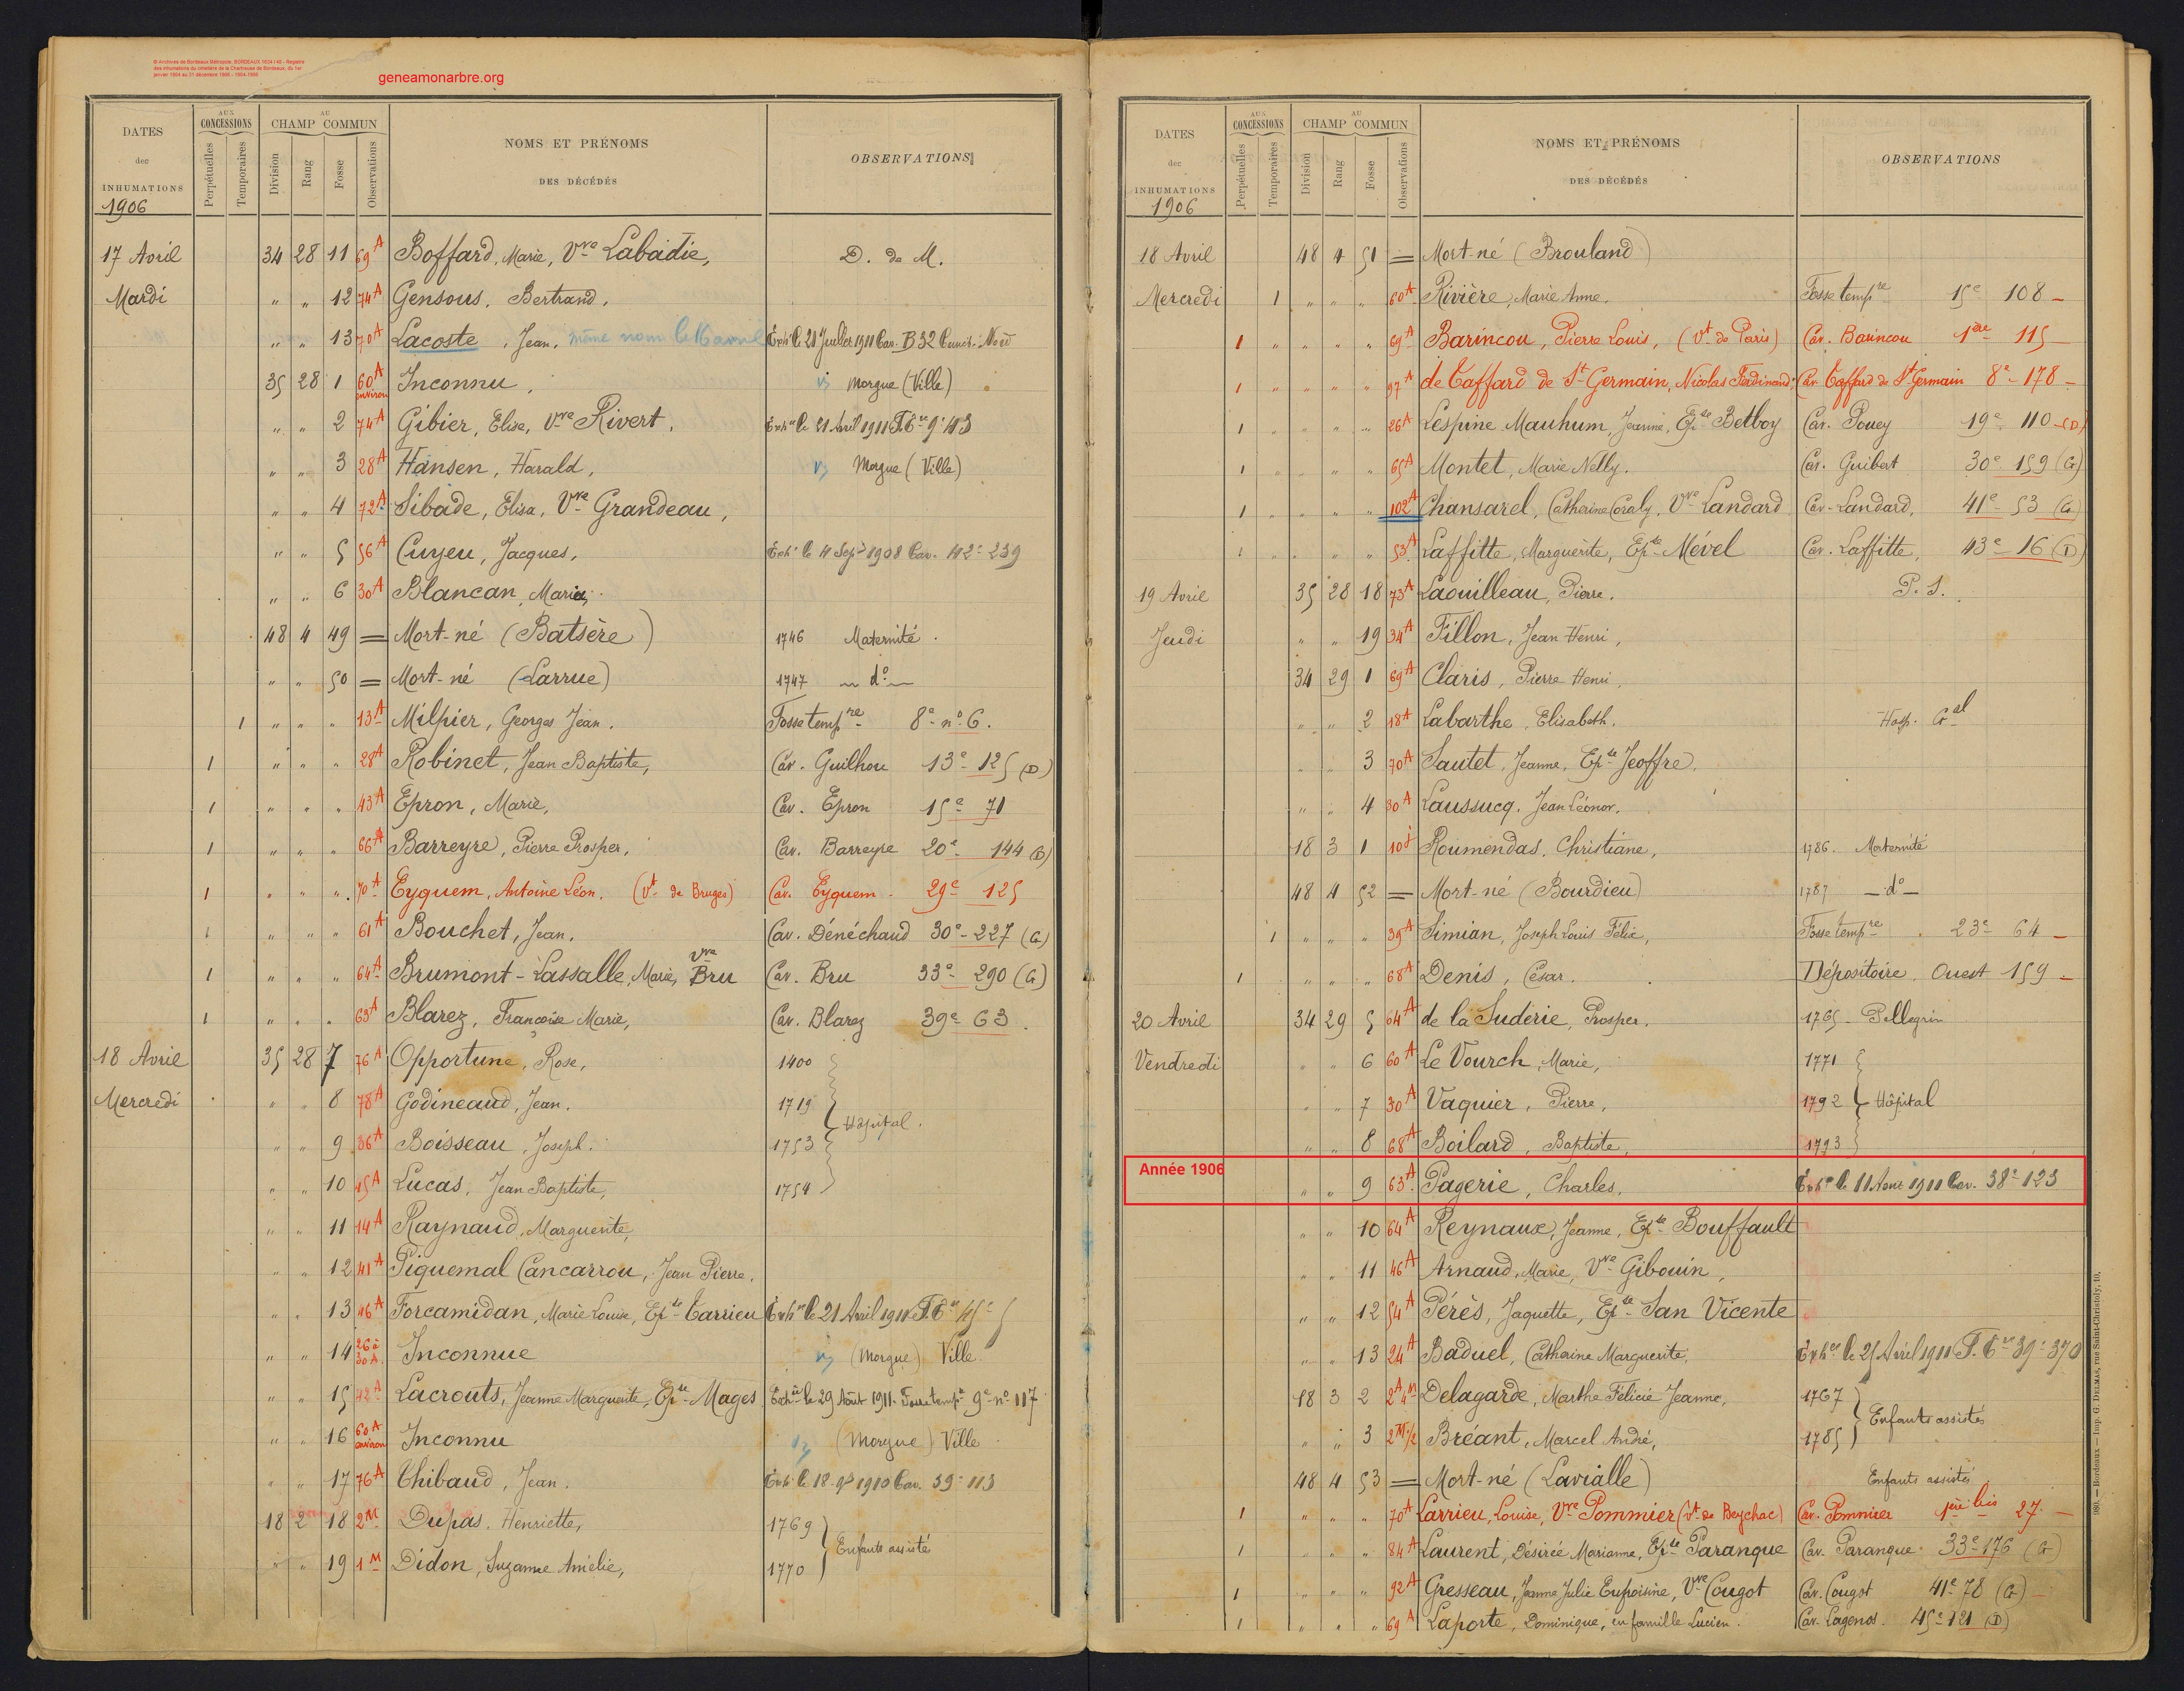 © Archives de Bordeaux Métropole, BORDEAUX 1924 I 40 - Registre
des inhumations du cimetière de la Chartreuse de Bordeaux, du 1er
janvier 1904 au 31 décembre 1906 - 1904-1906
geneamonarbre.org
DATES des INHUMATIONS 1906
AUX CONCESSIONS Perpétuelles Temporaires
AU CHAMP COMMUN Division Rang Fosse Observations
NOMS ET PRÉNOMS DES DÉCÉDÉS
OBSERVATIONS
17 Avril 34 28 11 69 A Boffard, Marie, Vve Labadie, D. de M.
Mardi " " 12 74 A Gensous, Bertrand,
" " 13 70 A Lacoste, Jean, même nom le 16 avril Exh. le 21 Juillet 1911 Cav. B 32 Nord
35 28 1 60 A environ Inconnu, Morgue (Ville)
" " 2 74 A Gibier, Elise, Vve Rivert, Exh. le 21 Avril 1911 9e 43
" " 3 28 A Hansen, Harald, Morgue (Ville)
" " 4 72 A Sibade, Elisa, Vve Grandeau,
" " 5 56 A Cuyeu, Jacques, Exh. le 4 Sept 1908 Cav. 42e 239
" " 6 30 A Blancan, Maria,
48 4 49 = Mort-né (Batsère) 1746 Maternité.
" " 50 = Mort-né (Larrue) 1747 — do —
1 " " " 13 A Milpier, Georges Jean. Fosse tempre 8e no 6.
1 " " " 28 A Robinet, Jean Baptiste, Cav. Guilhou 13e 125 (D)
1 " " " 43 A Epron, Marie, Cav. Epron 15e 71
1 " " " 66 A Barreyre, Pierre Prosper, Cav. Barreyre 20e 144 (D)
1 " " " 70 A Eyquem, Antoine Léon. (Vt de Bruges) Cav. Eyquem 29e 125
1 " " " 61 A Bouchet, Jean. Cav. Dénéchaud 30e 227 (G)
1 " " " 64 A Brumont-Lassalle, Marie, Vve Bru Cav. Bru 33e 290 (G)
1 " " " 63 A Blarez, Françoise Marie, Cav. Blarez 39e 63.
18 Avril 35 28 7 76 A Opportune, Rose, 1400
Mercredi " " 8 78 A Godineaud, Jean. 1719 Hôpital.
" " 9 36 A Boisseau, Joseph. 1753
" " 10 45 A Lucas, Jean Baptiste, 1754
" " 11 14 A Raynaud, Marguerite,
" " 12 41 A Piquemal Cancarrou, Jean Pierre.
" " 13 46 A Forcamidan, Marie Louise, Epse Carrieu Exh. le 21 Avril 1911
" " 14 26 à 30 A. Inconnue (Morgue) Ville.
" " 15 42 A Lacrouts, Jeanne Marguerite, Epse Mages Exh. le 29 Août 1911. Fosse temp. 9e no 117
" " 16 60 A environ Inconnu (Morgue) Ville
" " 17 76 A Thibaud, Jean. Exh. le 18 1910 Cav. 39e 113
18 2 18 2 M Dupas, Henriette, 1769
" " 19 1 M Didon, Suzanne Amélie, 1770 Enfants assistés
DATES des INHUMATIONS 1906
AUX CONCESSIONS Perpétuelles Temporaires
AU CHAMP COMMUN Division Rang Fosse Observations
NOMS ET PRÉNOMS DES DÉCÉDÉS
OBSERVATIONS
18 Avril 48 4 51 = Mort-né (Brouland)
Mercredi 1 " " " 60 A Rivière, Marie Anne. Fosse tempre 15e 108 -
1 " " " 69 A Barincou, Pierre Louis, (Vt de Paris) Cav. Barincou 1ère 115
1 " " " 97 A de Taffard de St Germain, Nicolas Ferdinand, Cav. Taffard de St Germain 8e 178 -
1 " " " 26 A Lespine Mauhum, Jeanne, Epse Betboy Cav. Pouey 19e 110 (D)
1 " " " 65 A Montet, Marie Nelly. Cav. Guibert 30e 159 (G)
1 " " " 102 A Chansarel, Catherine Coraly, Vve Landard Cav. Landard, 41e 53 (G)
1 " " " 53 A Laffitte, Marguerite, Epse Mével Cav. Laffitte, 43e 16 (D)
19 Avril 35 28 18 73 A Laouilleau, Pierre. P. S.
Jeudi " " 19 34 A Fillon, Jean Henri,
34 29 1 69 A Claris, Pierre Henri,
" " 2 18 A Labarthe, Elisabeth. Hosp. Gal
" " 3 70 A Sautet, Jeanne, Epse Jeoffre.
" " 4 30 A Laussucq, Jean Léonor.
18 3 1 10 j Roumendas, Christiane, 1786. Maternité
48 4 52 = Mort-né (Bourdieu) 1787 — do —
1 " " " 39 A Simian, Joseph Louis Félix, Fosse tempre 23e 64 -
1 " " " 68 A Denis, César. Dépositoire. Ouest 159 -
20 Avril 34 29 5 64 A de la Suderie, Prosper. 1765 - Pellegrin
Vendredi " " 6 60 A Le Vourch, Marie, 1771
" " 7 30 A Vaquier, Pierre, 1792 Hôpital
" " 8 68 A Boilard, Baptiste, 1793
Année 1906 " " 9 63 A Pagerie, Charles, Exh. le 11 Aout 1911 Cav. 38e 123
" " 10 64 A Reynaux, Jeanne, Epse Bouffault
" " 11 46 A Arnaud, Marie, Vve Gibouin,
" " 12 54 A Pérès, Jaquette, Epse San Vicente
" " 13 24 A Baduel, Catherine Marguerite, Exh. le 21 Avril 1911 39e 370
18 3 2 2 A 4 m Delagarde, Marthe Félicie Jeanne, 1767
" " 3 2 M 1/2 Bréant, Marcel André, 1785 Enfants assistés
48 4 53 = Mort-né (Lavialle) Enfants assistés
1 " " " 70 A Larrieu, Louise, Vve Pommier (Vt de Beychac) Cav. Pommier 1ère bis 27. -
1 " " " 84 A Laurent, Désirée Marianne, Epse Paranque Cav. Paranque 33e 176 (G)
1 " " " 92 A Gresseau, Jeanne Julie Euphoisine, Vve Cougot Cav. Cougot 41e 78 (G)
1 " " " 69 A Laporte, Dominique, en famille Lucien. Cav. Lagenos. 45e 121 (D)
980. — Bordeaux — Imp. G. DELMAS, rue Saint-Christoly, 10.